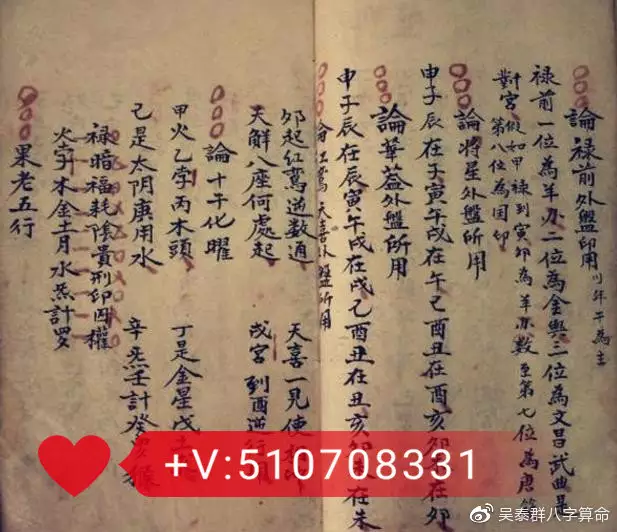 論禄前外盤印用 以年干為主
禄前一位為羊刃二位為金輿三位為文昌武曲是
對宮 假如甲禄到寅卯為羊刃数至第七位為唐符
第八位為国印
論将星外盤所用
申子辰在子寅午戌在午己酉丑在酉亥卯在卯
論華蓋外盤所用
申子辰在辰寅午戌在戌己酉丑在丑亥卯在未
論红鸞天喜外盤所用
卯起红鸞逆数通 天喜一見使
天解八座何處起 戌宮到酉逆
論十干化曜
甲火乙孛丙木頭 丁是金星戊
己是太阴庚用水 辛炁壬計癸
禄暗福耗陰貴刑印囚權
火孛木金土月水炁計罗
果老五行
+V:510708331
@吴泰群八字算命